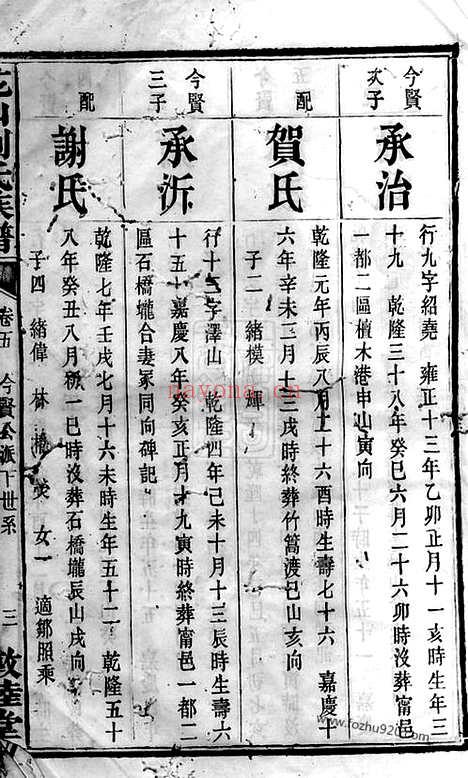 今賢
次子
承治
行九字紹堯 雍正十三年乙卯正月十一亥時生年三
十九 乾隆三十八年癸巳六月二十六卯時沒葬甯邑
一都二區檀木港申山寅向
配
賀氏
乾隆元年丙辰八月二十六酉時生壽七十六 嘉慶十
六年辛未二月十三戌時終葬竹篙渡巳山亥向
子二 緒模 輝
今賢
三子
承沂
行十二字澤山 乾隆四年己未十月十三辰時生壽六
十五 嘉慶八年癸亥正月十九寅時終葬甯邑一都二
區石橋壠合妻冢同向碑記
配
謝氏
乾隆七年壬戌七月十六未時生年五十二 乾隆五十
八年癸丑八月初一巳時沒葬石橋壠辰山戌向
子四 緒偉 林 女一 適鄒照乘
劉氏族譜
卷五 今賢公派十世系
三
敦陸堂
nayona.cn
www.fozhu920.com